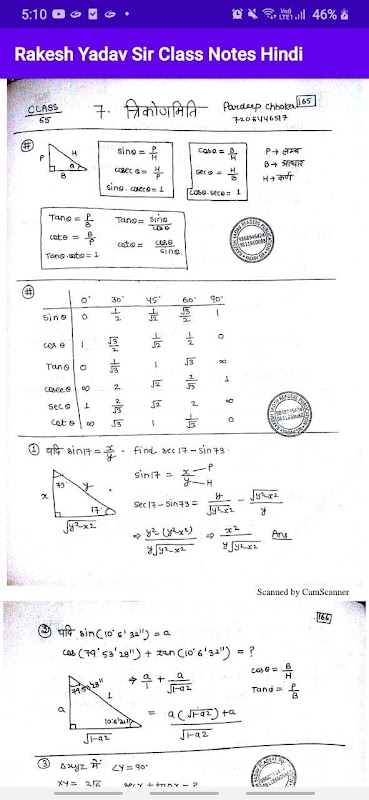 5:10
46%
Rakesh Yadav Sir Class Notes Hindi
CLASS 65
7. त्रिकोणमिति
Pardeep Chhoker
7206446517
165
# P H B θ
sinθ = P/H
cosecθ = H/P
sinθ. cosecθ = 1
cosθ = B/H
secθ = H/B
cosθ. secθ = 1
P → लम्ब
B → आधार
H → कर्ण
Tanθ = P/B
cotθ = B/P
Tanθ. cotθ = 1
Tanθ = sinθ/cosθ
cotθ = cosθ/sinθ
# 0° 30° 45° 60° 90°
sinθ 0 1/2 1/√2 √3/2 1
cosθ 1 √3/2 1/√2 1/2 0
Tanθ 0 1/√3 1 √3 ∞
cosecθ ∞ 2 √2 2/√3 1
secθ 1 2/√3 √2 2 ∞
cotθ ∞ √3 1 1/√3 0
① यदि sin17 = x/y . find sec17 - sin73.
x 73° y 17° √y²-x²
sin17 = x/y → P → H
sec17 - sin73 = y/√y²-x² - √y²-x²/y
⇒ y²-(y²-x²)/y√y²-x² ⇒ x²/y√y²-x² Ans
Scanned by CamScanner
166
② यदि sin(10°6'32") = a
cos(79°53'28") + tan(10°6'32") = ?
79°53'28" a 1 10°6'32" √1-a2
⇒ a/1 + a/√1-a2
= a(√1-a2)+a/√1-a2
cosθ = B/H
Tanθ = P/B
③ Δxyz में ∠Y=90°
XY = 2√6 secx + tanx = ?